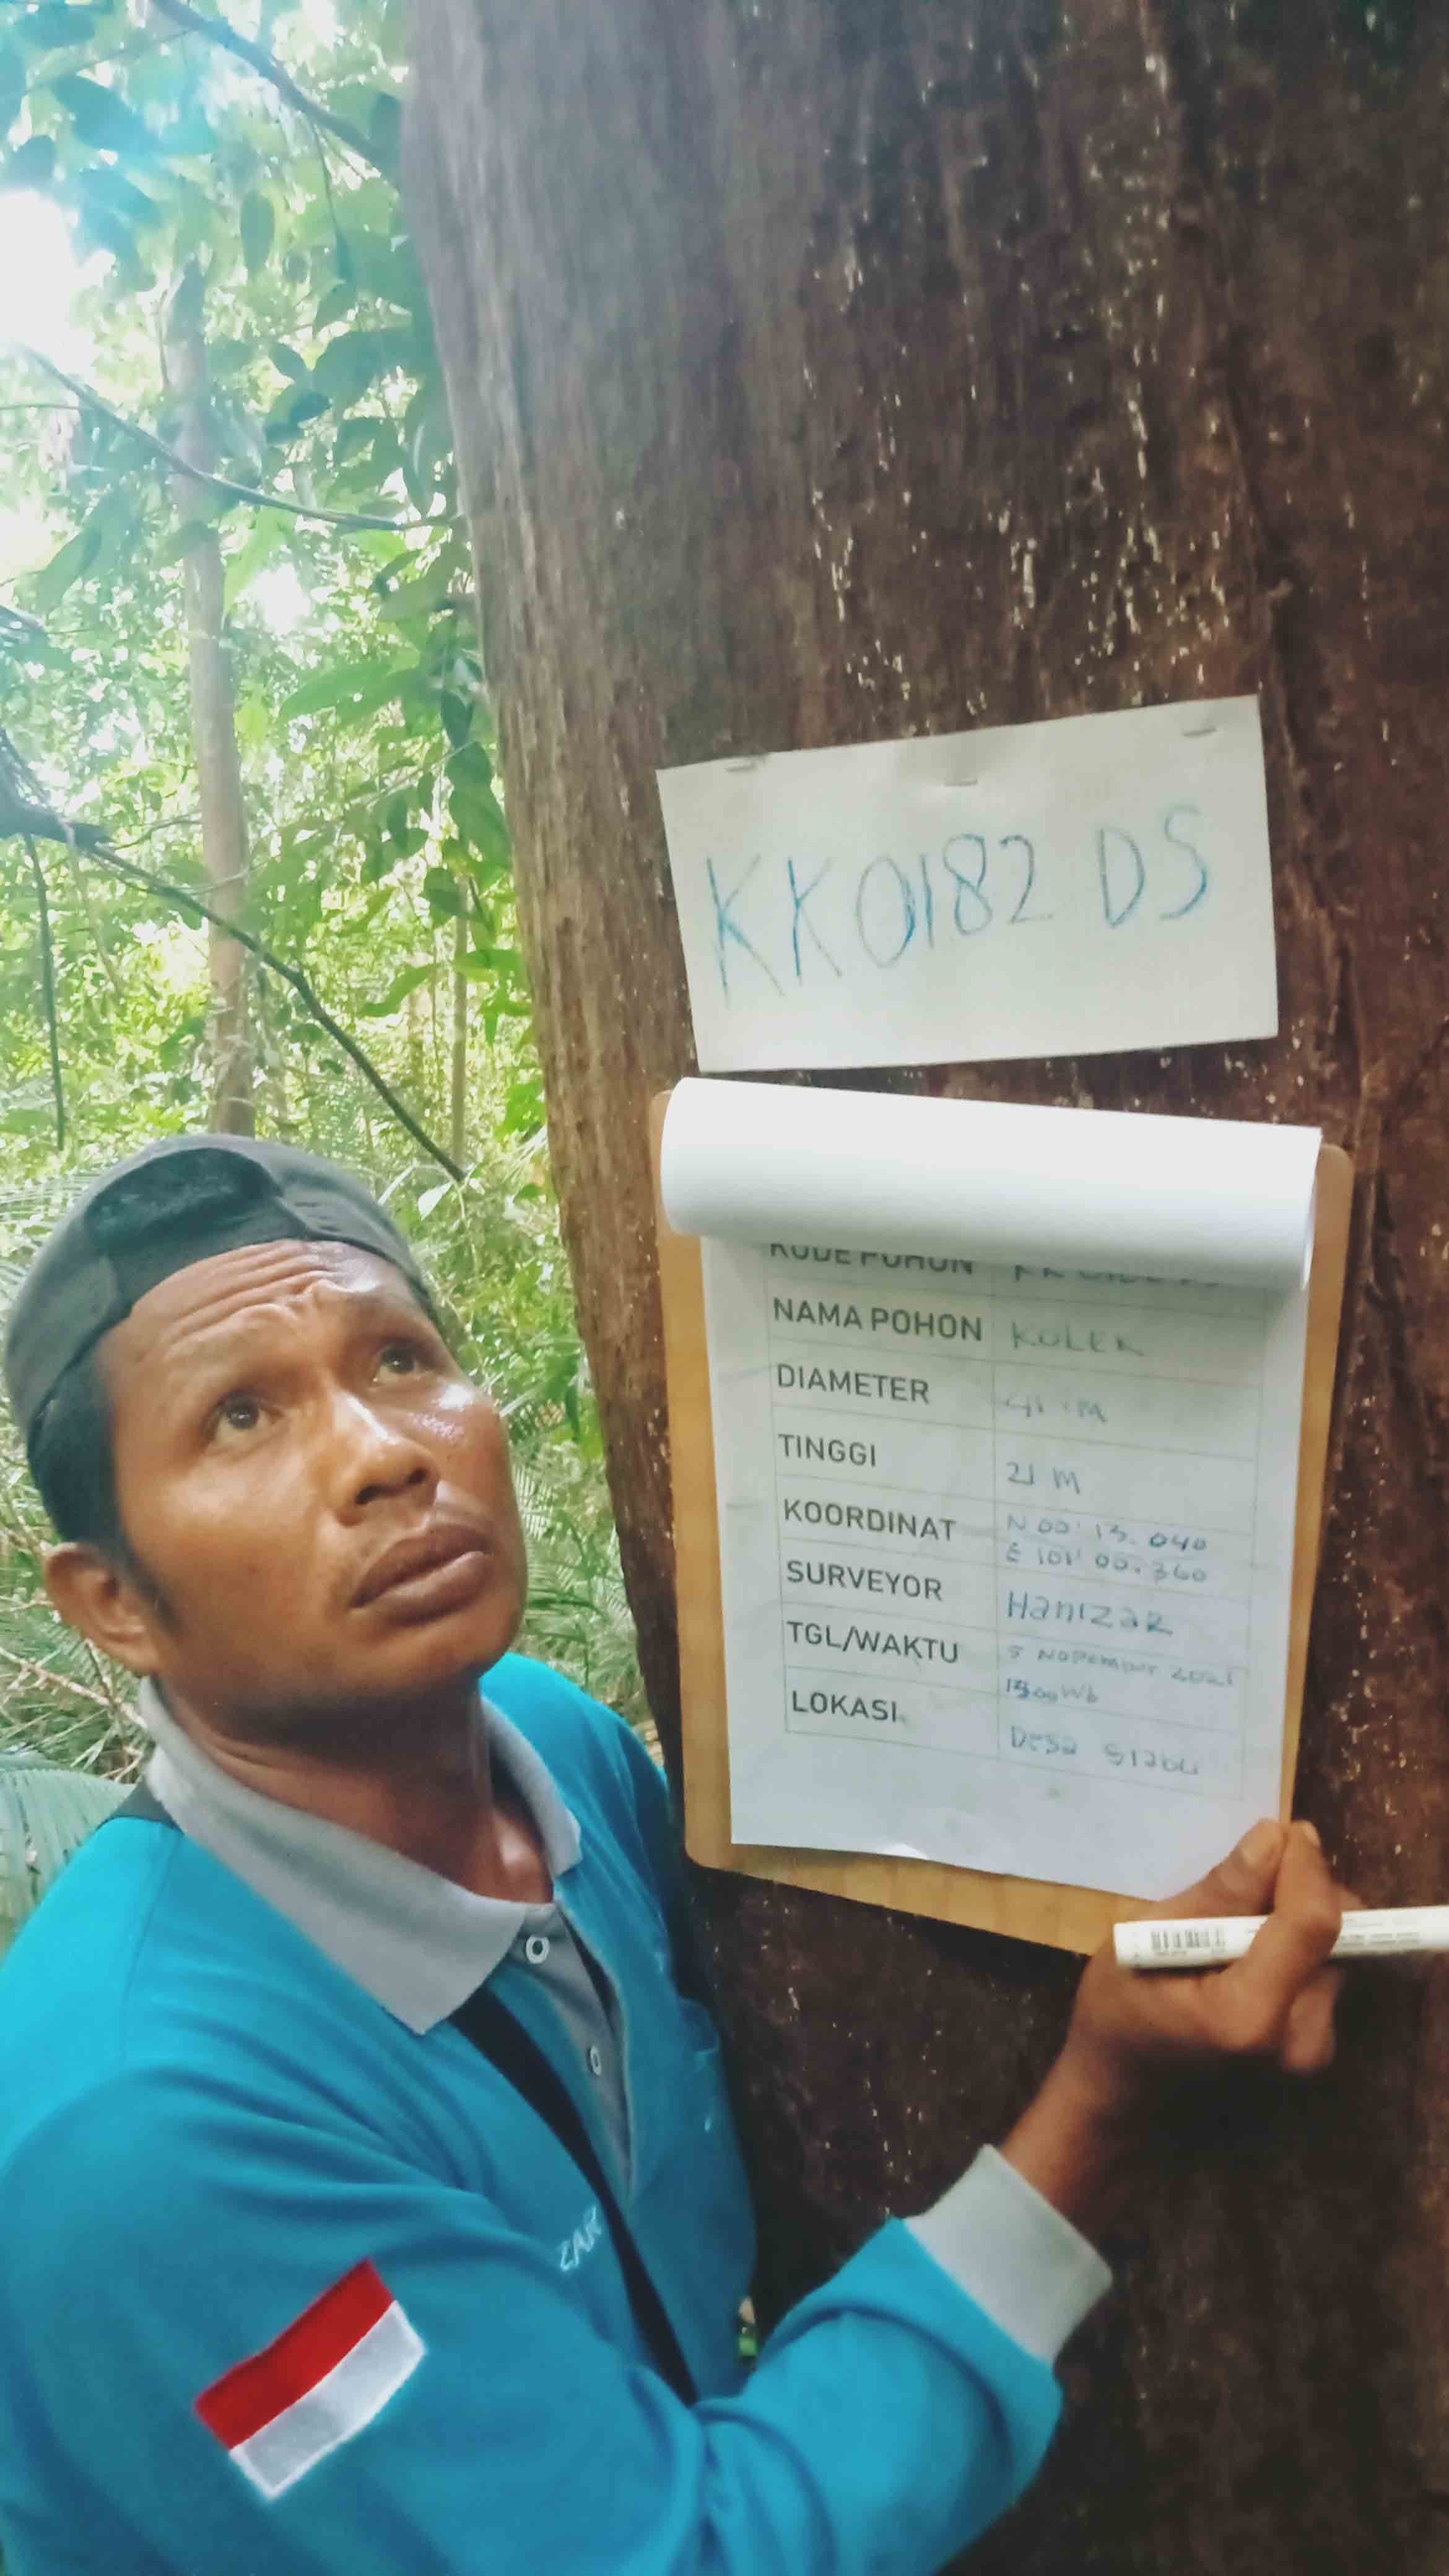 KK0182 DS
KODE POHON
NAMA POHON KOLEK
DIAMETER
TINGGI 21 M
KOORDINAT N 00' 13. 040
E 101' 00. 360
SURVEYOR HaNIZaR
TGL/WAKTU 5 NOPember 2021
LOKASI Desa Siabu
ZAR